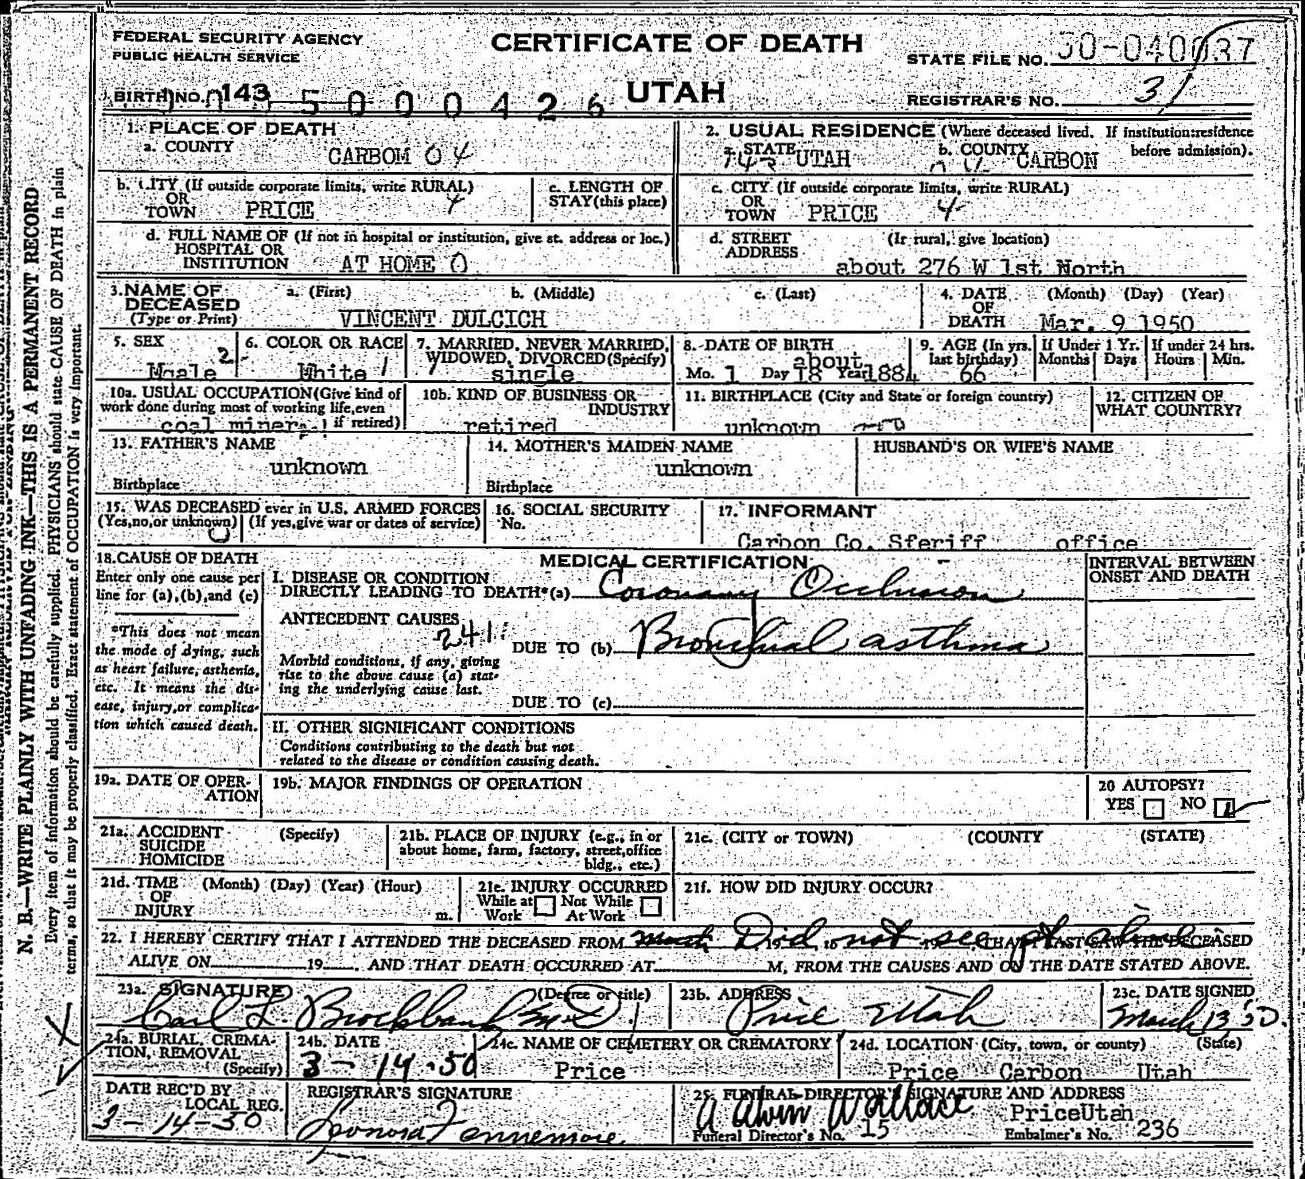 FEDERAL SECURITY AGENCY
PUBLIC HEALTH SERVICE
CERTIFICATE OF DEATH
STATE FILE NO. 50-040037
BIRTH NO. 143 5000426
UTAH
REGISTRAR'S NO. 31
1. PLACE OF DEATH
a. COUNTY
CARBOM 04
2. USUAL RESIDENCE (Where deceased lived. If institution:residence before admission).
a. STATE UTAH b. COUNTY CARBON
b. CITY (If outside corporate limits, write RURAL)
OR
TOWN PRICE 4
c. LENGTH OF
STAY (this place)
c. CITY (If outside corporate limits, write RURAL)
OR
TOWN PRICE 4
d. FULL NAME OF (If not in hospital or institution, give st. address or loc.)
HOSPITAL OR
INSTITUTION AT HOME 0
d. STREET (If rural, give location)
ADDRESS
about 276 W 1st North
3. NAME OF
DECEASED
(Type or Print)
a. (First) b. (Middle) c. (Last)
VINCENT DULCICH
4. DATE (Month) (Day) (Year)
OF
DEATH Mar. 9 1950
5. SEX
Mcale 2
6. COLOR OR RACE
White 1
7. MARRIED, NEVER MARRIED,
WIDOWED, DIVORCED (Specify)
1 single
8. DATE OF BIRTH
about
Mo. 1 Day 18 Year 1884
9. AGE (In yrs.
last birthday)
66
If Under 1 Yr.
Months Days
If under 24 hrs.
Hours Min.
10a. USUAL OCCUPATION (Give kind of
work done during most of working life, even
if retired)
coal miner
10b. KIND OF BUSINESS OR
INDUSTRY
retired
11. BIRTHPLACE (City and State or foreign country)
unknown
12. CITIZEN OF
WHAT COUNTRY?
13. FATHER'S NAME
unknown
Birthplace
14. MOTHER'S MAIDEN NAME
unknown
Birthplace
HUSBAND'S OR WIFE'S NAME
15. WAS DECEASED ever in U.S. ARMED FORCES
(Yes, no, or unknown) (If yes, give war or dates of service)
U
16. SOCIAL SECURITY
No.
17. INFORMANT
Carbon Co. Sferiff office
18. CAUSE OF DEATH
Enter only one cause per
line for (a), (b), and (c)
*This does not mean
the mode of dying, such
as heart failure, asthenia,
etc. It means the dis-
ease, injury, or complica-
tion which caused death.
MEDICAL CERTIFICATION
INTERVAL BETWEEN
ONSET AND DEATH
I. DISEASE OR CONDITION
DIRECTLY LEADING TO DEATH*(a) Coronary Occlusion
ANTECEDENT CAUSES
241
DUE TO (b) Bronchial asthma
Morbid conditions, if any, giving
rise to the above cause (a) stat-
ing the underlying cause last.
DUE TO (c)
II. OTHER SIGNIFICANT CONDITIONS
Conditions contributing to the death but not
related to the disease or condition causing death.
19a. DATE OF OPER-
ATION
19b. MAJOR FINDINGS OF OPERATION
20 AUTOPSY?
YES NO
21a. ACCIDENT (Specify)
SUICIDE
HOMICIDE
21b. PLACE OF INJURY (e.g., in or
about home, farm, factory, street, office
bldg., etc.)
21c. (CITY or TOWN) (COUNTY) (STATE)
21d. TIME (Month) (Day) (Year) (Hour)
OF
INJURY m.
21e. INJURY OCCURRED
While at Not While
Work At Work
21f. HOW DID INJURY OCCUR?
22. I HEREBY CERTIFY THAT I ATTENDED THE DECEASED FROM Did not see pt alive THAT I LAST SAW THE DECEASED
ALIVE ON 19 AND THAT DEATH OCCURRED AT M, FROM THE CAUSES AND ON THE DATE STATED ABOVE.
23a. SIGNATURE (Degree or title)
Carl L. Brockbank M.D.
23b. ADDRESS
Price Utah
23c. DATE SIGNED
March 13 50.
24a. BURIAL, CREMA-
TION, REMOVAL
(Specify)
24b. DATE
3-14-50
24c. NAME OF CEMETERY OR CREMATORY
Price
24d. LOCATION (City, town, or county) (State)
Price Carbon Utah
DATE REC'D BY
LOCAL REG.
3-14-50
REGISTRAR'S SIGNATURE
Leonora Fannemore
25. FUNERAL DIRECTOR'S SIGNATURE AND ADDRESS
A Alvin Wallace
Price Utah
Funeral Director's No. 15 Embalmer's No. 236
N. B.—WRITE PLAINLY WITH UNFADING INK—THIS IS A PERMANENT RECORD
Every item of information should be carefully supplied. PHYSICIANS should state CAUSE OF DEATH in plain
terms, so that it may be properly classified. Exact statement of OCCUPATION is very important.